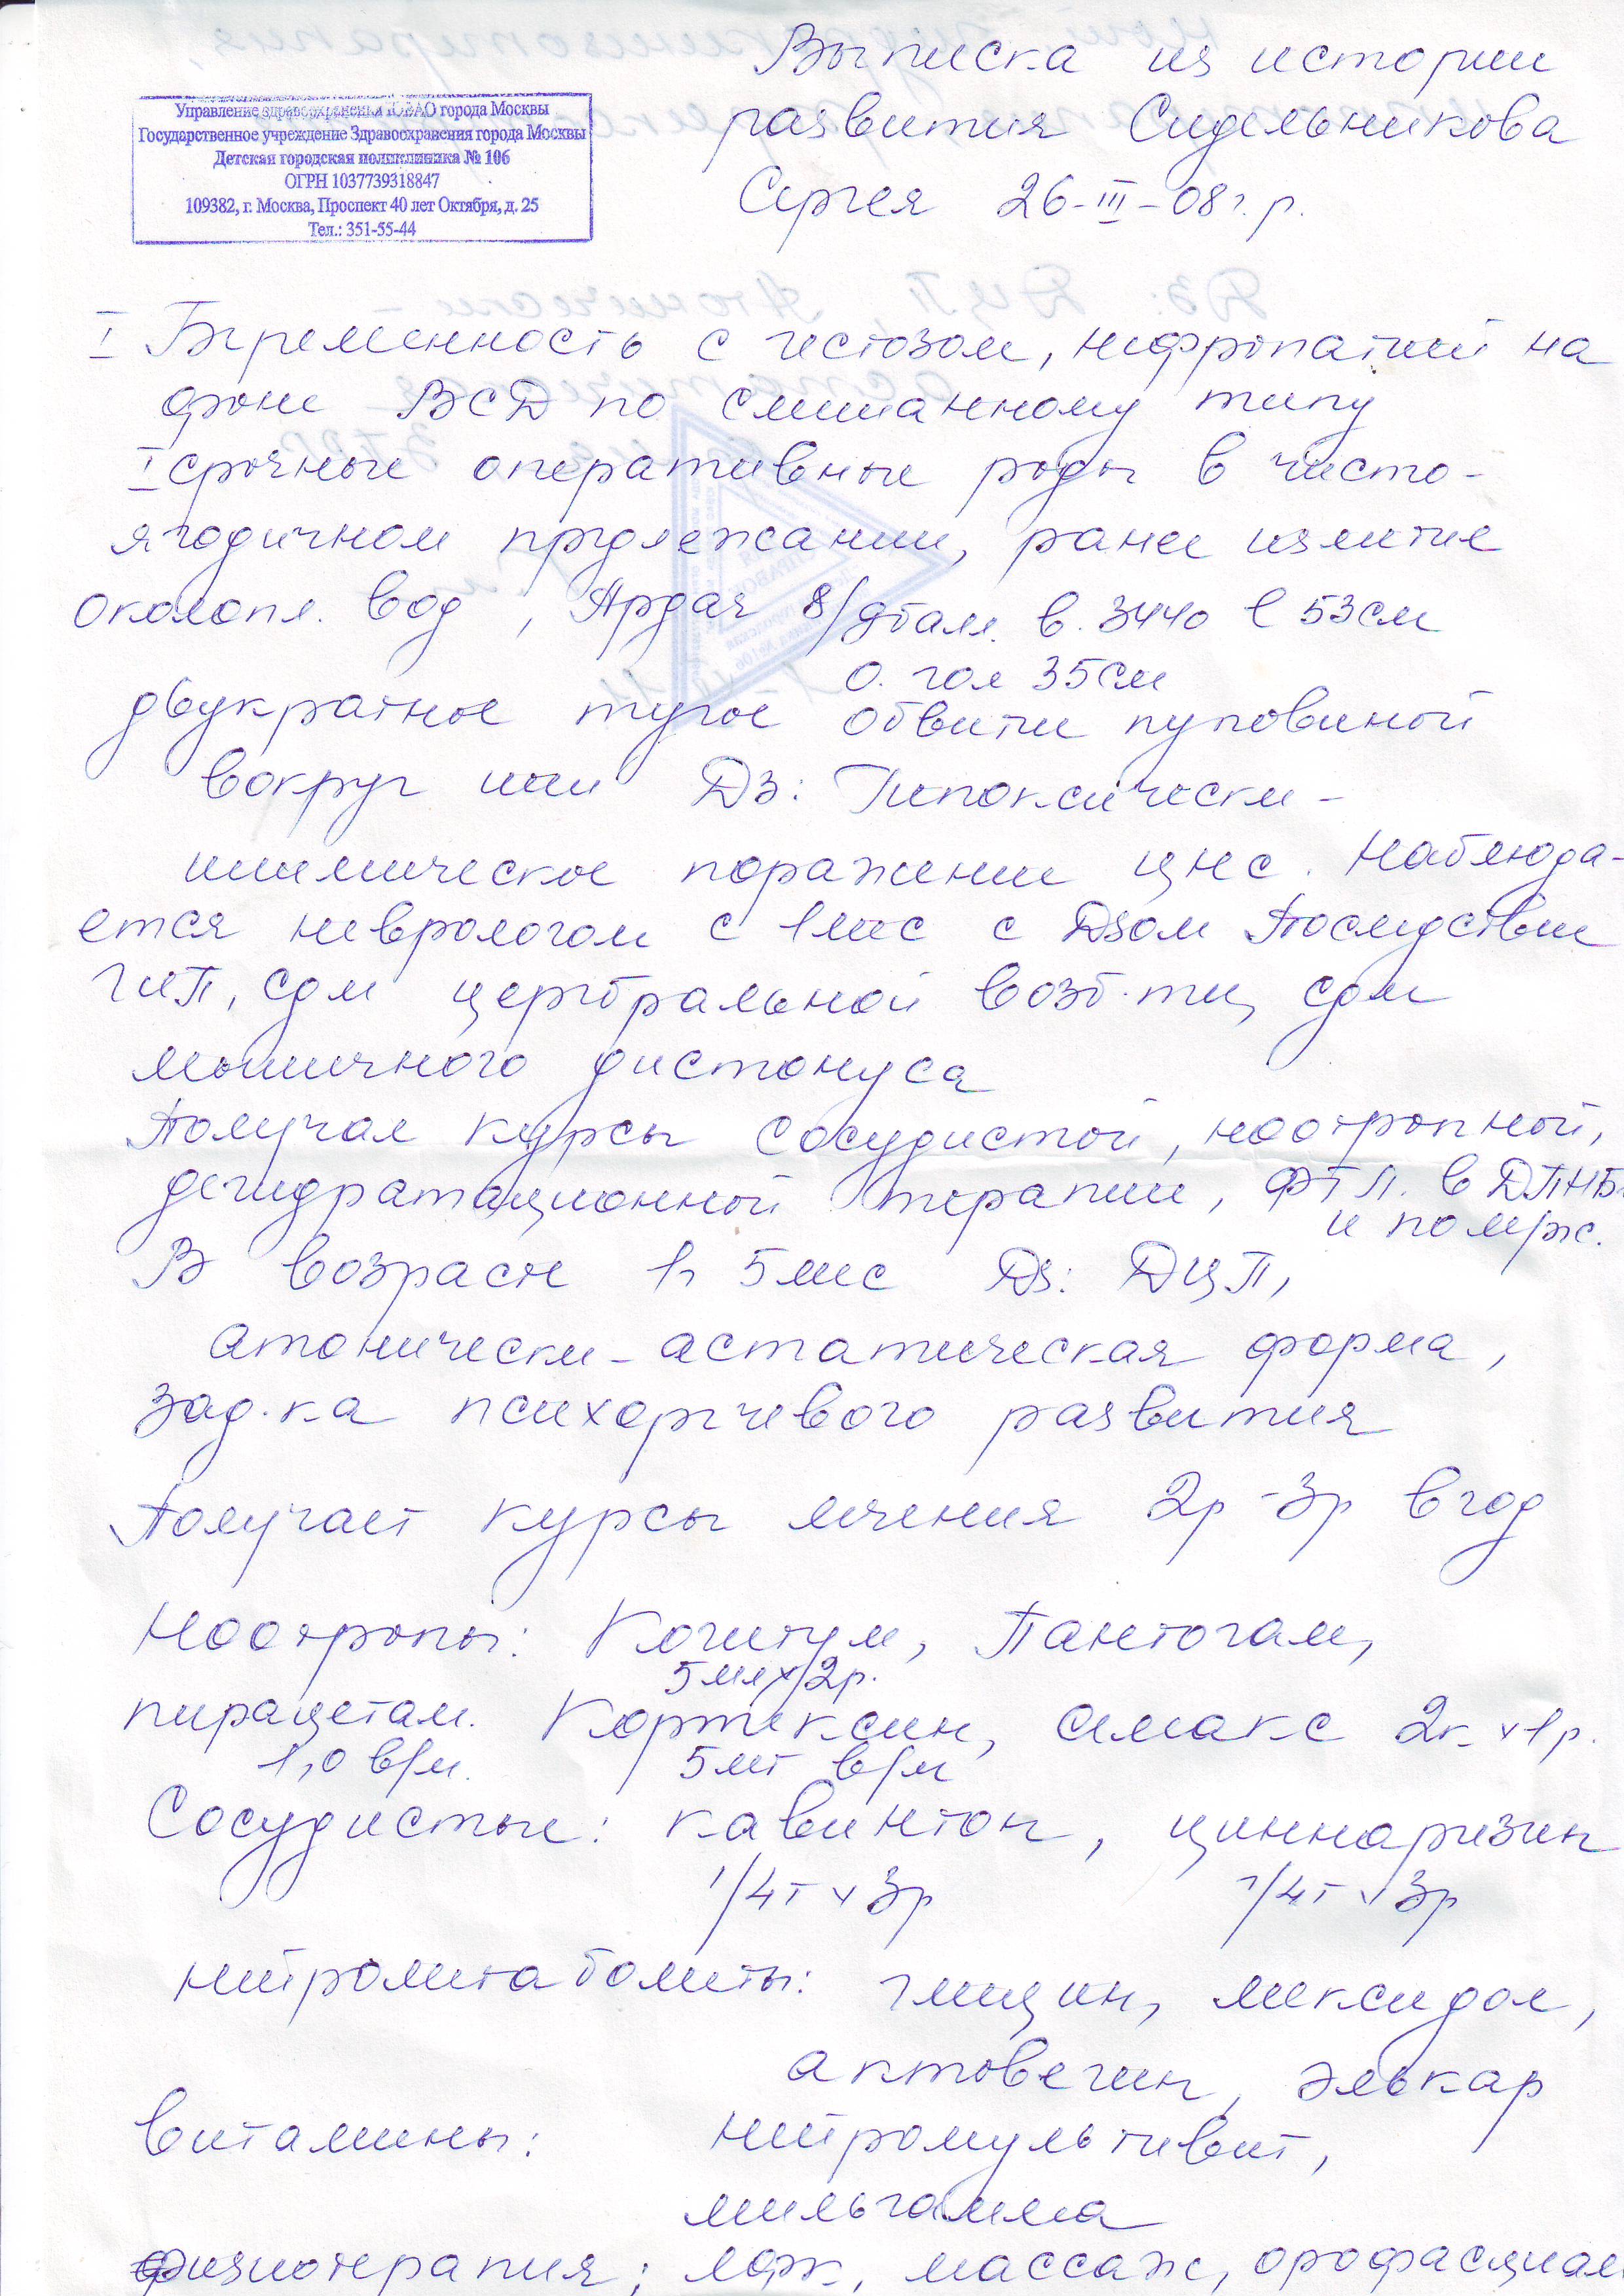 Управление здравоохранения ЮВАО города Москвы
Государственное учреждение Здравоохранения города Москвы
Детская городская поликлиника № 106
ОГРН 1037739318847
109382, г. Москва, Проспект 40 лет Октября, д. 25
Тел.: 351-55-44
Выписка из истории
развития Сидельникова
Сергея 26-III-08г.р.
I Беременность с гестозом, нефропатией на
фоне ВСД по смешанному типу
I срочные оперативные роды в чисто-
ягодичном предлежании, ранее излитие
околопл. вод, Апгар 8/9бал. в. 3440 l 53см
о. гол 35см
двукратное тугое обвитие пуповиной
вокруг шеи Дз: Гипоксически-
ишемическое поражение ЦНС. Наблюда-
ется неврологом с 1мес с Dзом Последствие
ГИП, сдм церебральной возб.ти, сдм
мышечного дистонуса
Получал курсы сосудистой, ноотропной,
дегидратационной терапии, ФТЛ. в ДПНБ
и полик.
В возрасте 1г 5мес Dз: ДЦП,
атонически-астатическая форма,
зад.ка психоречевого развития
Получает курсы лечения 2р-3р в год
Ноотропы: Когитум, Пантогам,
5мл х 2р.
пирацетам. Кортексин, семакс 2к. х 1р.
1,0 в/м. 5мг в/м
Сосудистые: кавинтон, циннаризин
1/4т х 3р 1/4т х 3р
нейрометаболиты: глицин, мексидол,
актовегин, элькар
Витамины: нейромультивит,
мильгамма
Физиотерапия: лфк, массаж, орофасциал